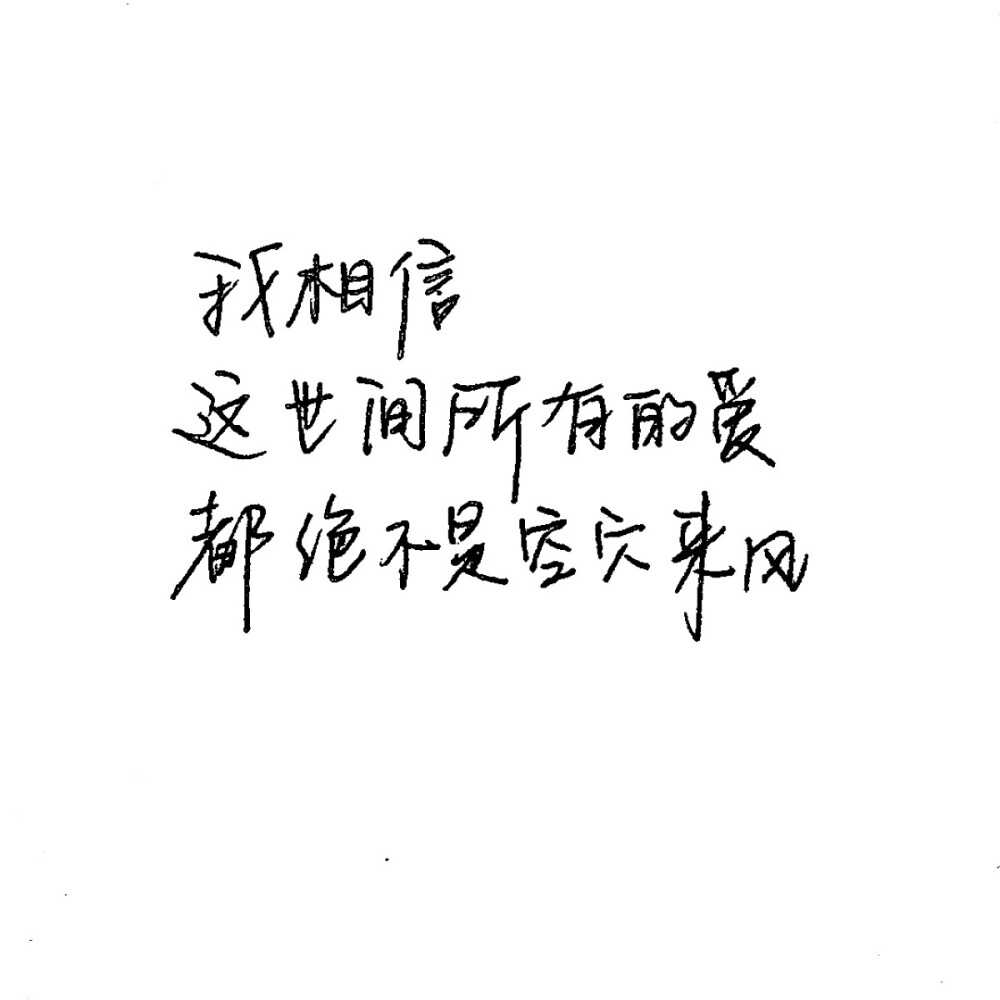 我相信
这世间所有的爱
都绝不是空穴来风